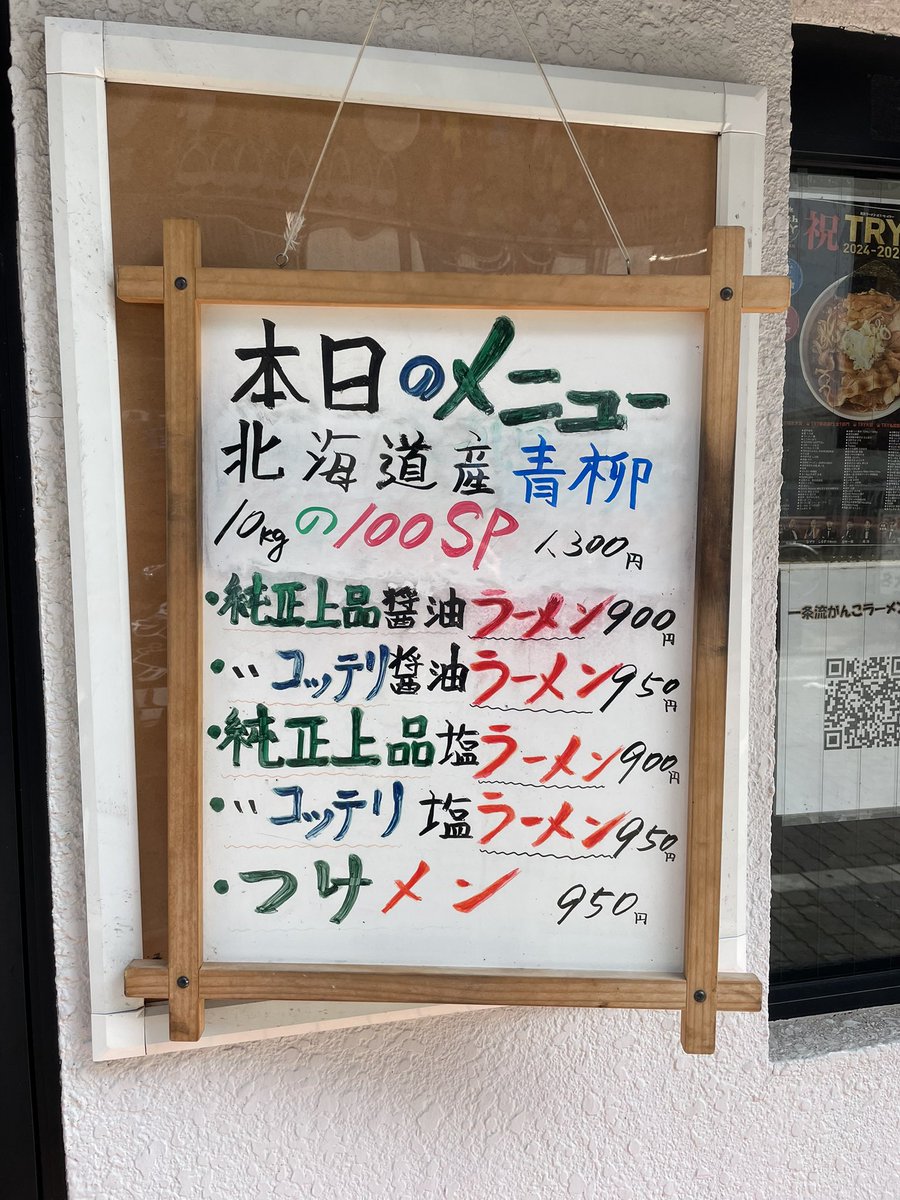 本日のメニュー
北海道産青柳
10kgの100SP 1,300円
・純正上品醤油ラーメン900円
・〃コッテリ醤油ラーメン950円
・純正上品塩ラーメン900円
・〃コッテリ塩ラーメン950円
・つけメン 950円
祝 TRY
2024-202
一条流がんこラーメン